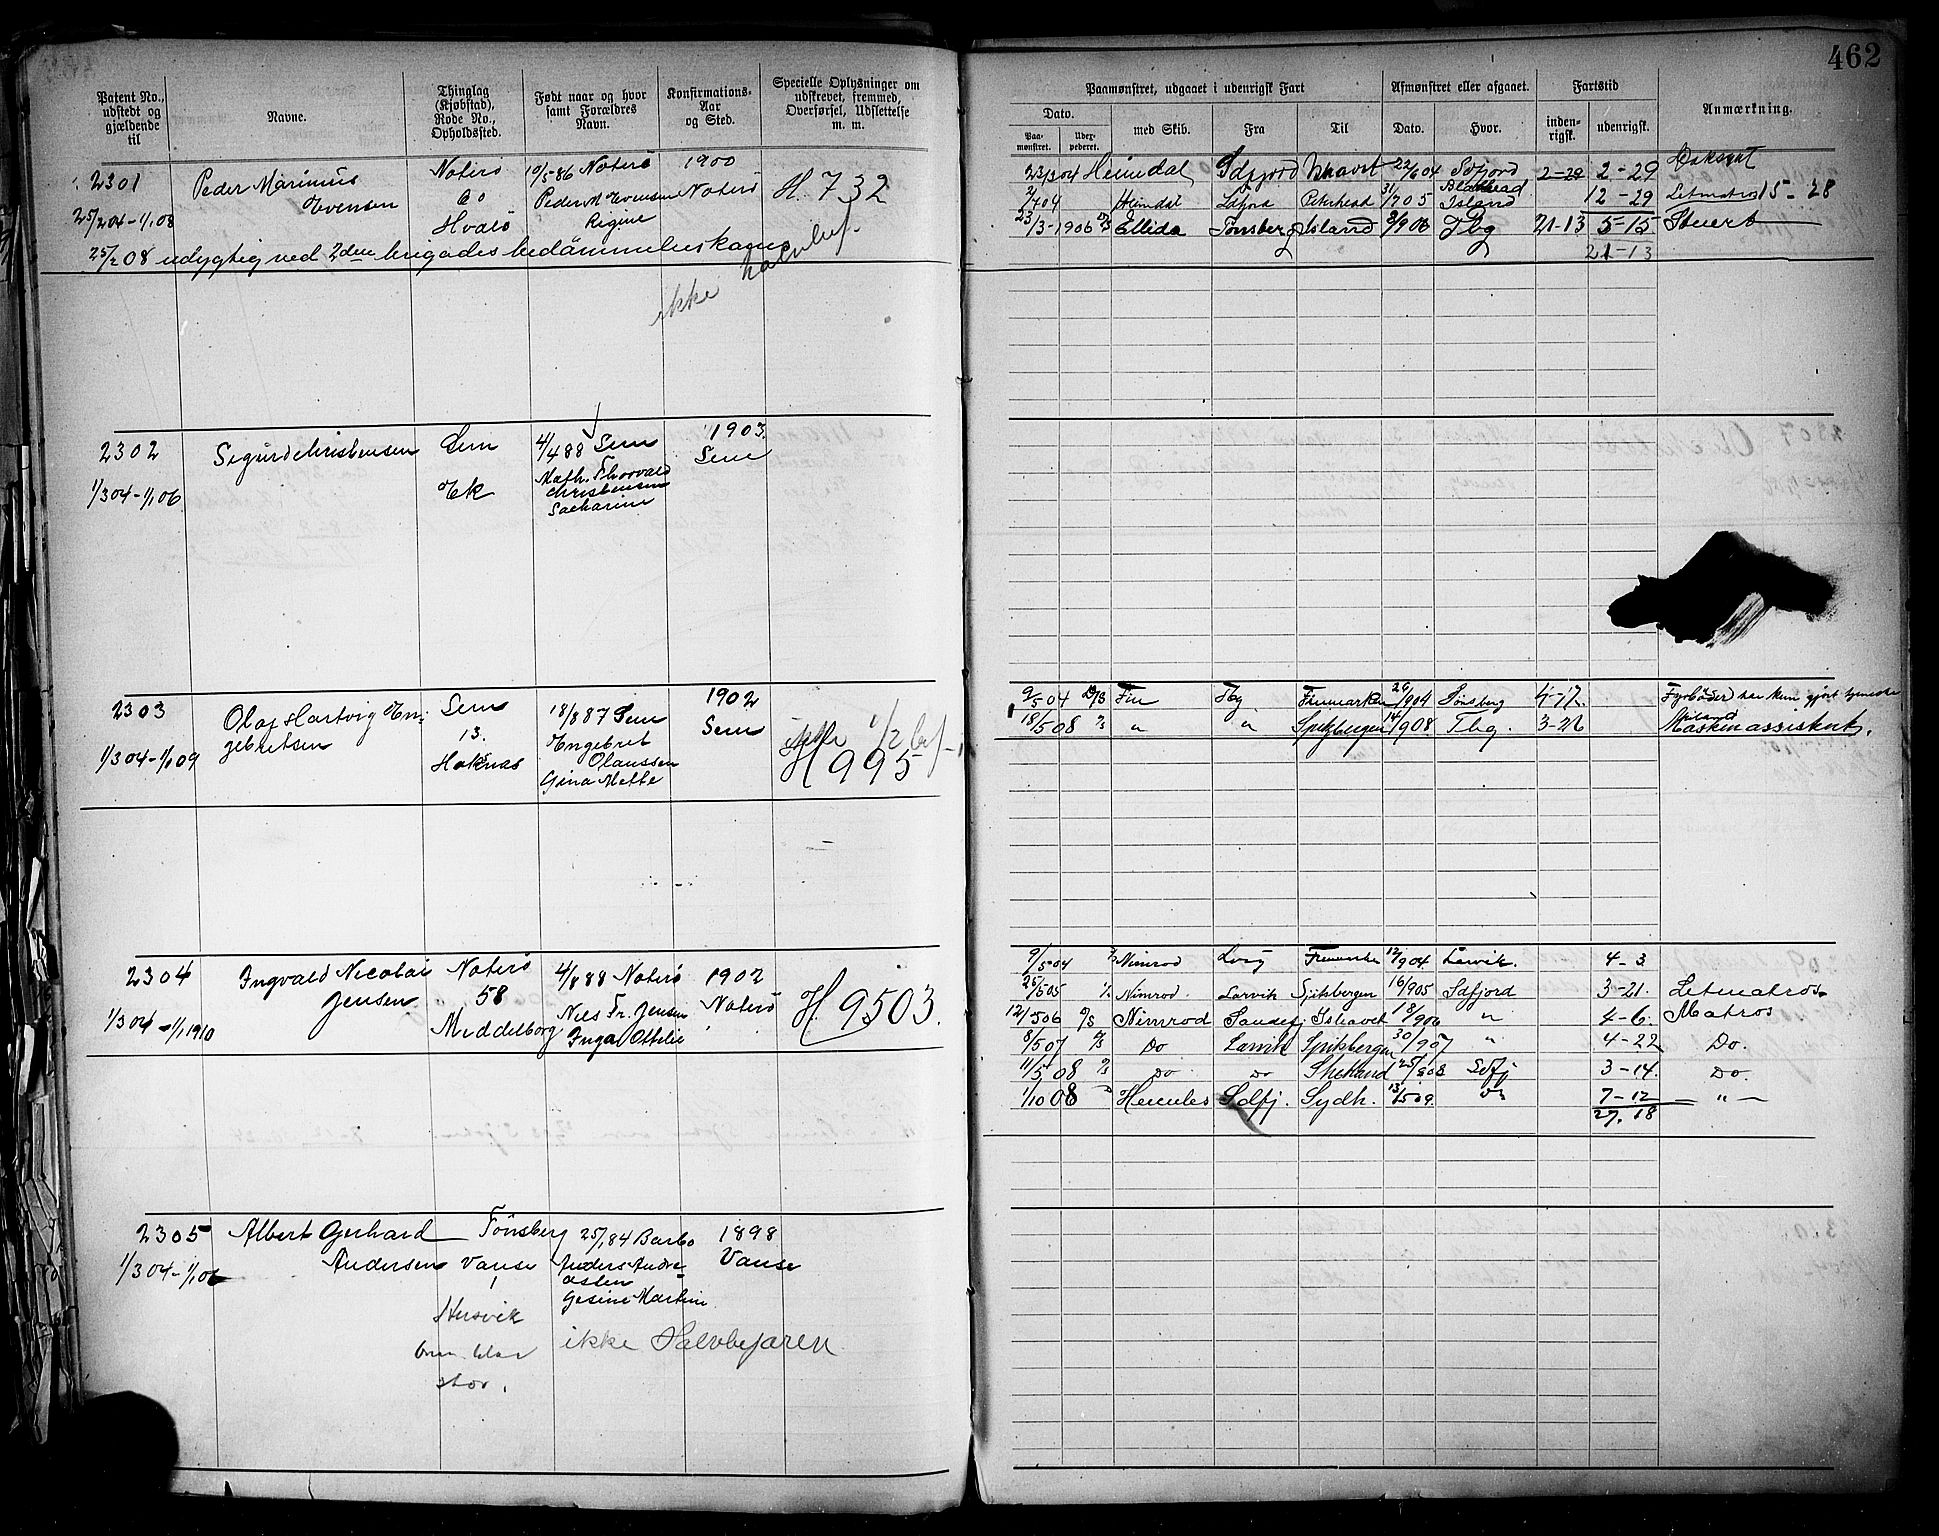 462
Patent No., udstedt og gjældende til
Navne.
Thinglag (Kjøbstad), Rode No., Opholdssted.
Født naar og hvor samt Forældres Navn.
Konfirmations-Aar og Sted.
Specielle Oplysninger om udskrevet, fremmed, Overførsel, Udslettelse m. m.
Paamønstret, udgaaet i udenrigsk Fart
Afmønstret eller afgaaet.
Fartstid
Anmærkning.
Dato.
med Skib.
Fra
Til
Dato.
Hvor.
inden-rigsk.
udenrigsk.
Paa-mønstret.
2301
Peder Marinius
Evensen
Noterø
60
Hvalø
10/5 86 Noterø
Peder M Evensen
Regine
1900
Noterø
H. 732
25/2 04 - 1/1 08
25/2 08 udygtig ved 2den brigades bedømmelseskom
ikke halvbef.
23/3 04 Heimdal Sdfjord Ishavet 22/6 04 Sdfjord 2-29 2-29
2/7 04 Heimdal Sdfjord Peterhead 31/7 05 Island 12-29 Letmatros 15-28
23/3-1906 Ellida Tønsberg Island 8/9 06 Tbg 21-13 5-15 Stuert
21-13
2302
Sigurd Christensen
Sem
Ek
4/4 88 Sem
Math. Thorvald
Christensen
Sacharine
1903.
Sem
1/3 04 - 1/1 06
2303
Olaf Hartvig En-
gebretsen
Sem
13.
Haknas
18/8 87 Sem
Engebret
Olaussen
Gina Mette
1902
Sem
ikke 1/2 bef-
H 995
1/3 04 - 1/1 09
9/5 04 D/S Fin Tbg Finmarken 26/9 04 Tønsberg 4-17. Fyrbøder har kun gjort tjeneste
18/5 08 " " Spitzbergen 14/9 08 Tbg. 3-26 Maskinassistent.
2304
Ingvald Nicolai
Jensen
Noterø
58
Middelborg
4/8 88 Noterø
Nils Fr. Jensen
Inga Ottilie
1902
Noterø
H. 9503.
1/3 04 - 1/1 1910
9/5 04 Nimrod Lvig 12/9 04 Larvik. 4-3
25/5 05 Nimrod. Larvik Spitsbergen 16/9 05 Sdfjord 3-21. Letmatros
12/5 06 Nimrod Sandef. Ishavet 18/9 06 " 4-6. Matros
6/5 07 Do Larvik Spitsbergen 30/9 07 " 4-22 Do.
11/5 08 Do Do Shetland 25/8 08 Sdfj 3-14. Do.
1/10 08 Hercules Sdfj. Sydh. 13/5 09. Do 7-12 - " -
27.18
2305
Albert Gerhard
Andersen
Tønsberg
Vanse
1
Husvik
25/1 84 Barbo
Anders Andre-
assen
Gesine Martine
1898
Vanse
1/3 04 - 1/1 06
ikke Halvbefaren